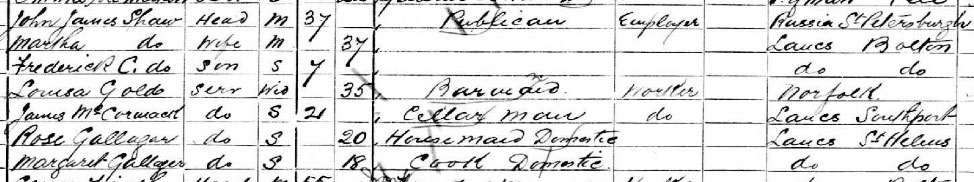 John James Shaw Head M 37 Publican Employer Russia St Petersburgh
Martha do Wife M 37 Lancs Bolton
Frederick C. do Son S 7 do do
Louisa Goldo Serv Wid 35 Barmaid Worker Norfolk
James McCormack do S 21 Cellar man do Lancs Southport
Rose Gallagar do S 20 Housemaid Domestic Lancs St Helens
Margaret Gallager do S 18 Cook Domestic do do
Head M 55